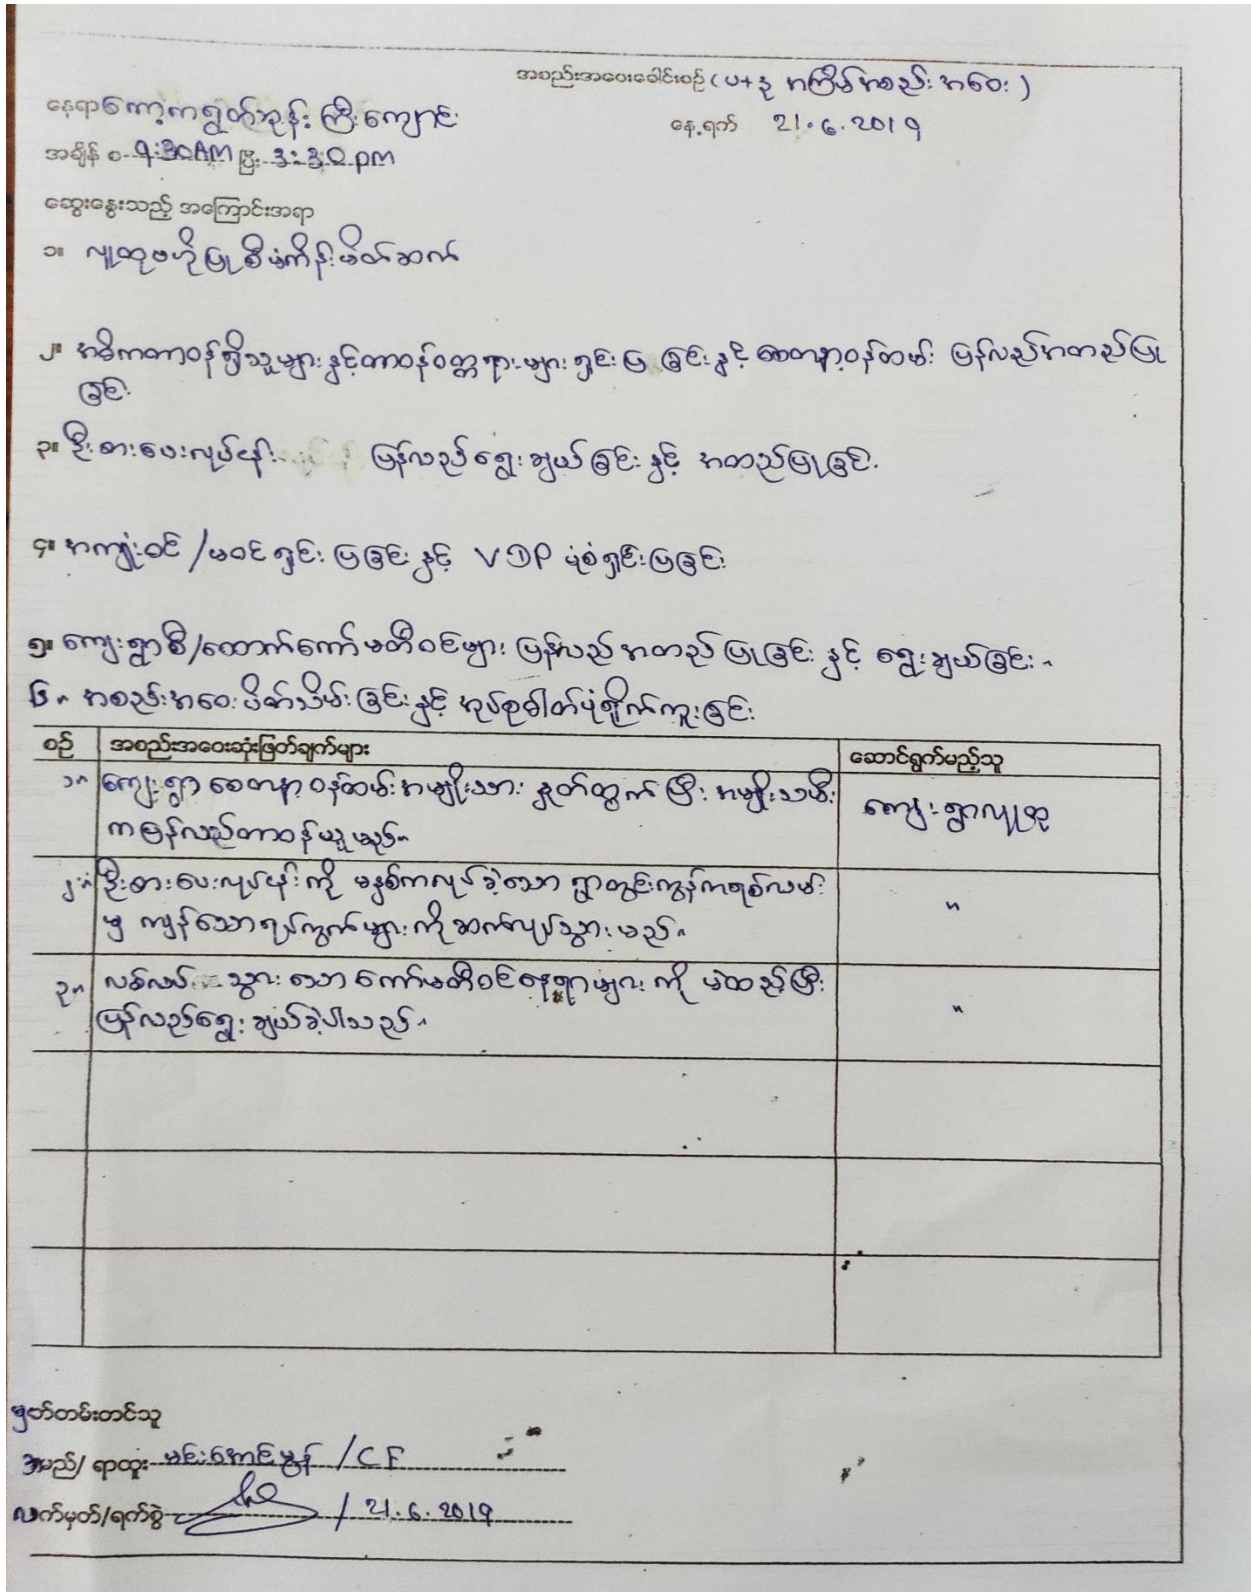 အစည်းအဝေးခေါင်းစဉ် (ပ+ဒု အကြိမ်အစည်းအဝေး)
နေရာ ကော့ကရွတ်ဘုန်းကြီးကျောင်း
နေ့ရက် 21.6.2019
အချိန် စ 9:30AM ပြီး 3:30 pm
ဆွေးနွေးသည့် အကြောင်းအရာ
၁။ လူထုဗဟိုပြုစီမံကိန်းမိတ်ဆက်
၂။ အဓိကတာဝန်ရှိသူများနှင့်တာဝန်ဝတ္တရားများရှင်းပြခြင်းနှင့် စေတနာ့ဝန်ထမ်း ပြန်လည်အတည်ပြု
ခြင်း
၃။ ဦးစားပေးလုပ်ငန်း ပြန်လည်ရွေးချယ်ခြင်းနှင့် အတည်ပြုခြင်း
၄။ အကျုံးဝင်/မဝင်ရှင်းပြခြင်းနှင့် VDP ပုံစံရှင်းပြခြင်း
၅။ ကျေးရွာစီ/ထောက်ကော်မတီဝင်များ ပြန်လည်အတည်ပြုခြင်း နှင့် ရွေးချယ်ခြင်း။
၆။ အစည်းအဝေးပိတ်သိမ်းခြင်းနှင့် အုပ်စုဓါတ်ပုံရိုက်ကူးခြင်း
စဉ် အစည်းအဝေးဆုံးဖြတ်ချက်များ ဆောင်ရွက်မည့်သူ
၁။ ကျေးရွာ စေတနာ့ဝန်ထမ်းအမျိုးသား နှုတ်ထွက်ပြီး အမျိုးသမီး ကျေးရွာလူထု
ကပြန်လည်တာဝန်ယူမည်။
၂။ ဦးစားပေးလုပ်ငန်းကို မနှစ်ကလုပ်ခဲ့သော ရွာတွင်းကွန်ကရစ်လမ်း "
မှ ကျန်သောရပ်ကွက်များကိုဆက်လုပ်သွားမည်။
၃။ လစ်လပ်သွားသော ကော်မတီဝင်နေရာများကို မဲထည့်ပြီး "
ပြန်လည်ရွေးချယ်ခဲ့ပါသည်။
မှတ်တမ်းတင်သူ
အမည်/ ရာထူး မင်းအောင်မွန် /CF
လက်မှတ်/ရက်စွဲ / 21.6.2019